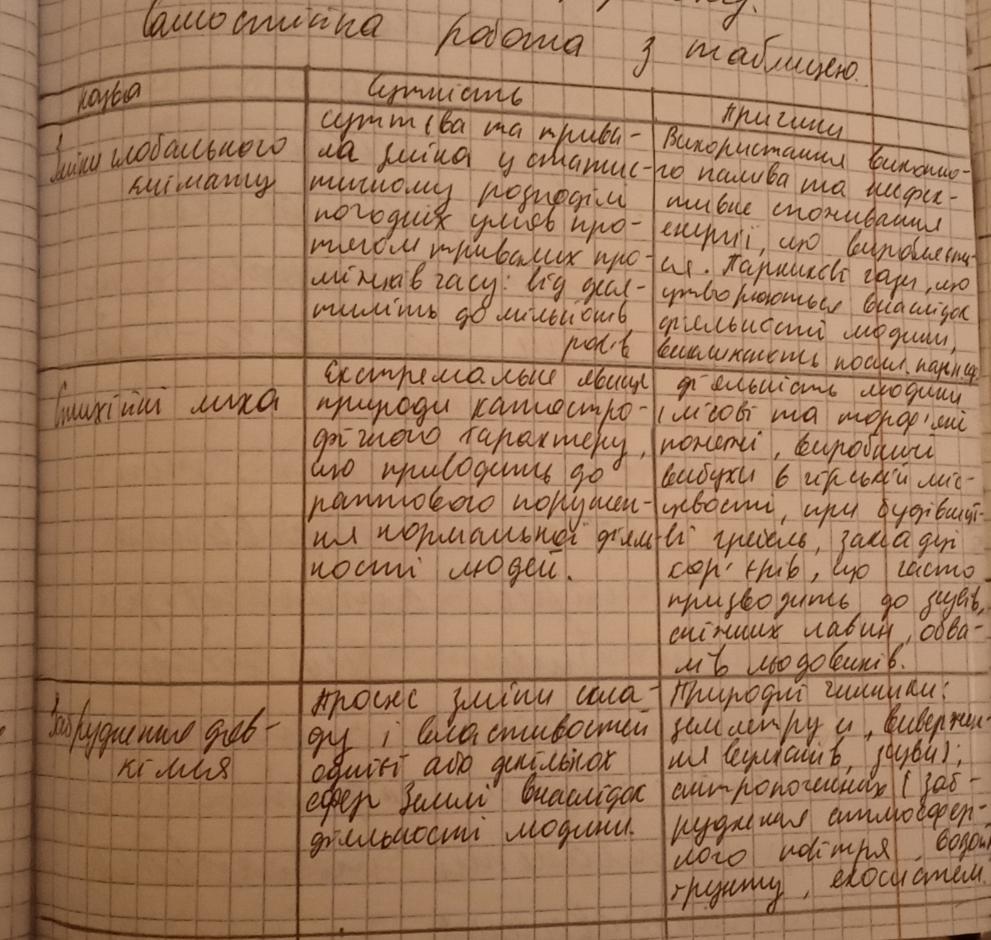 Самостійна робота з таблицею.
назва
Сутність
Причини
Зміни глобального
клімату
суттєва та трива-
ла зміна у статис-
тичному розподілі
погодніх умов про-
тягом тривалих про-
міжків часу: від деся-
тиліть до мільйонів
років
Використання викопно-
го палива та неефек-
тивне споживання
енергії, що виробляєть-
ся. Парникові гази, що
утворюються внаслідок
діяльності людини,
викликають посил. парник.
Стихійні лиха
Екстремальне явище
природи катастро-
фічного характеру,
що приводить до
раптового порушен-
ня нормальної діяль-
ності людей.
діяльність людини
(лісові та торф'яні
пожежі, виробничі
вибухи в гірській міс-
цевості, при будівниц-
ві гребель, закладці
кар'єрів, що часто
призводить до зсувів,
сніжних лавин, обва-
лів льодовиків.
Забруднення дов-
кілля
Процес зміни скла-
ду і властивостей
однієї або декількох
сфер Землі внаслідок
діяльності людини.
Природні чинники:
землетруси, вивержен-
ня вулканів, зсуви);
антропогенних (заб-
руднення атмосфер-
ного повітря, водой
грунту, екосистем.